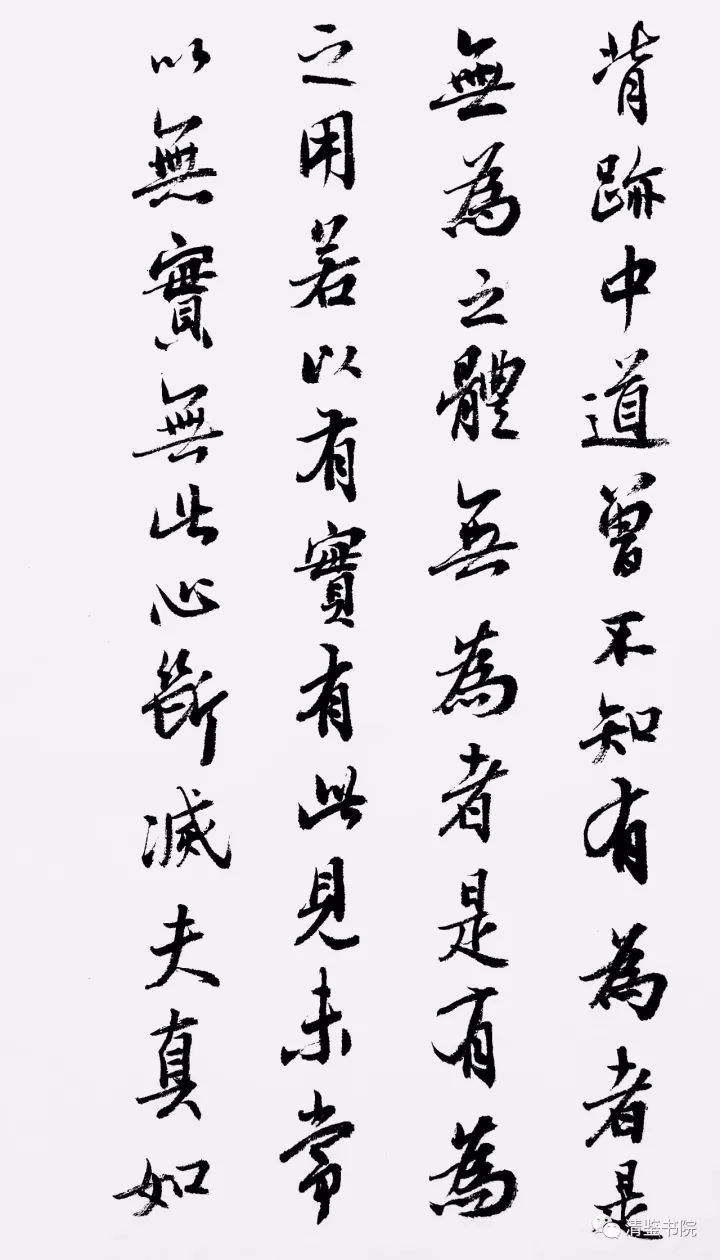 背跡中道曾不知有為者是
無為之體無為者是有為
之用若以有實有此見未常
以無實無此心斷滅夫真如
清鉴书院